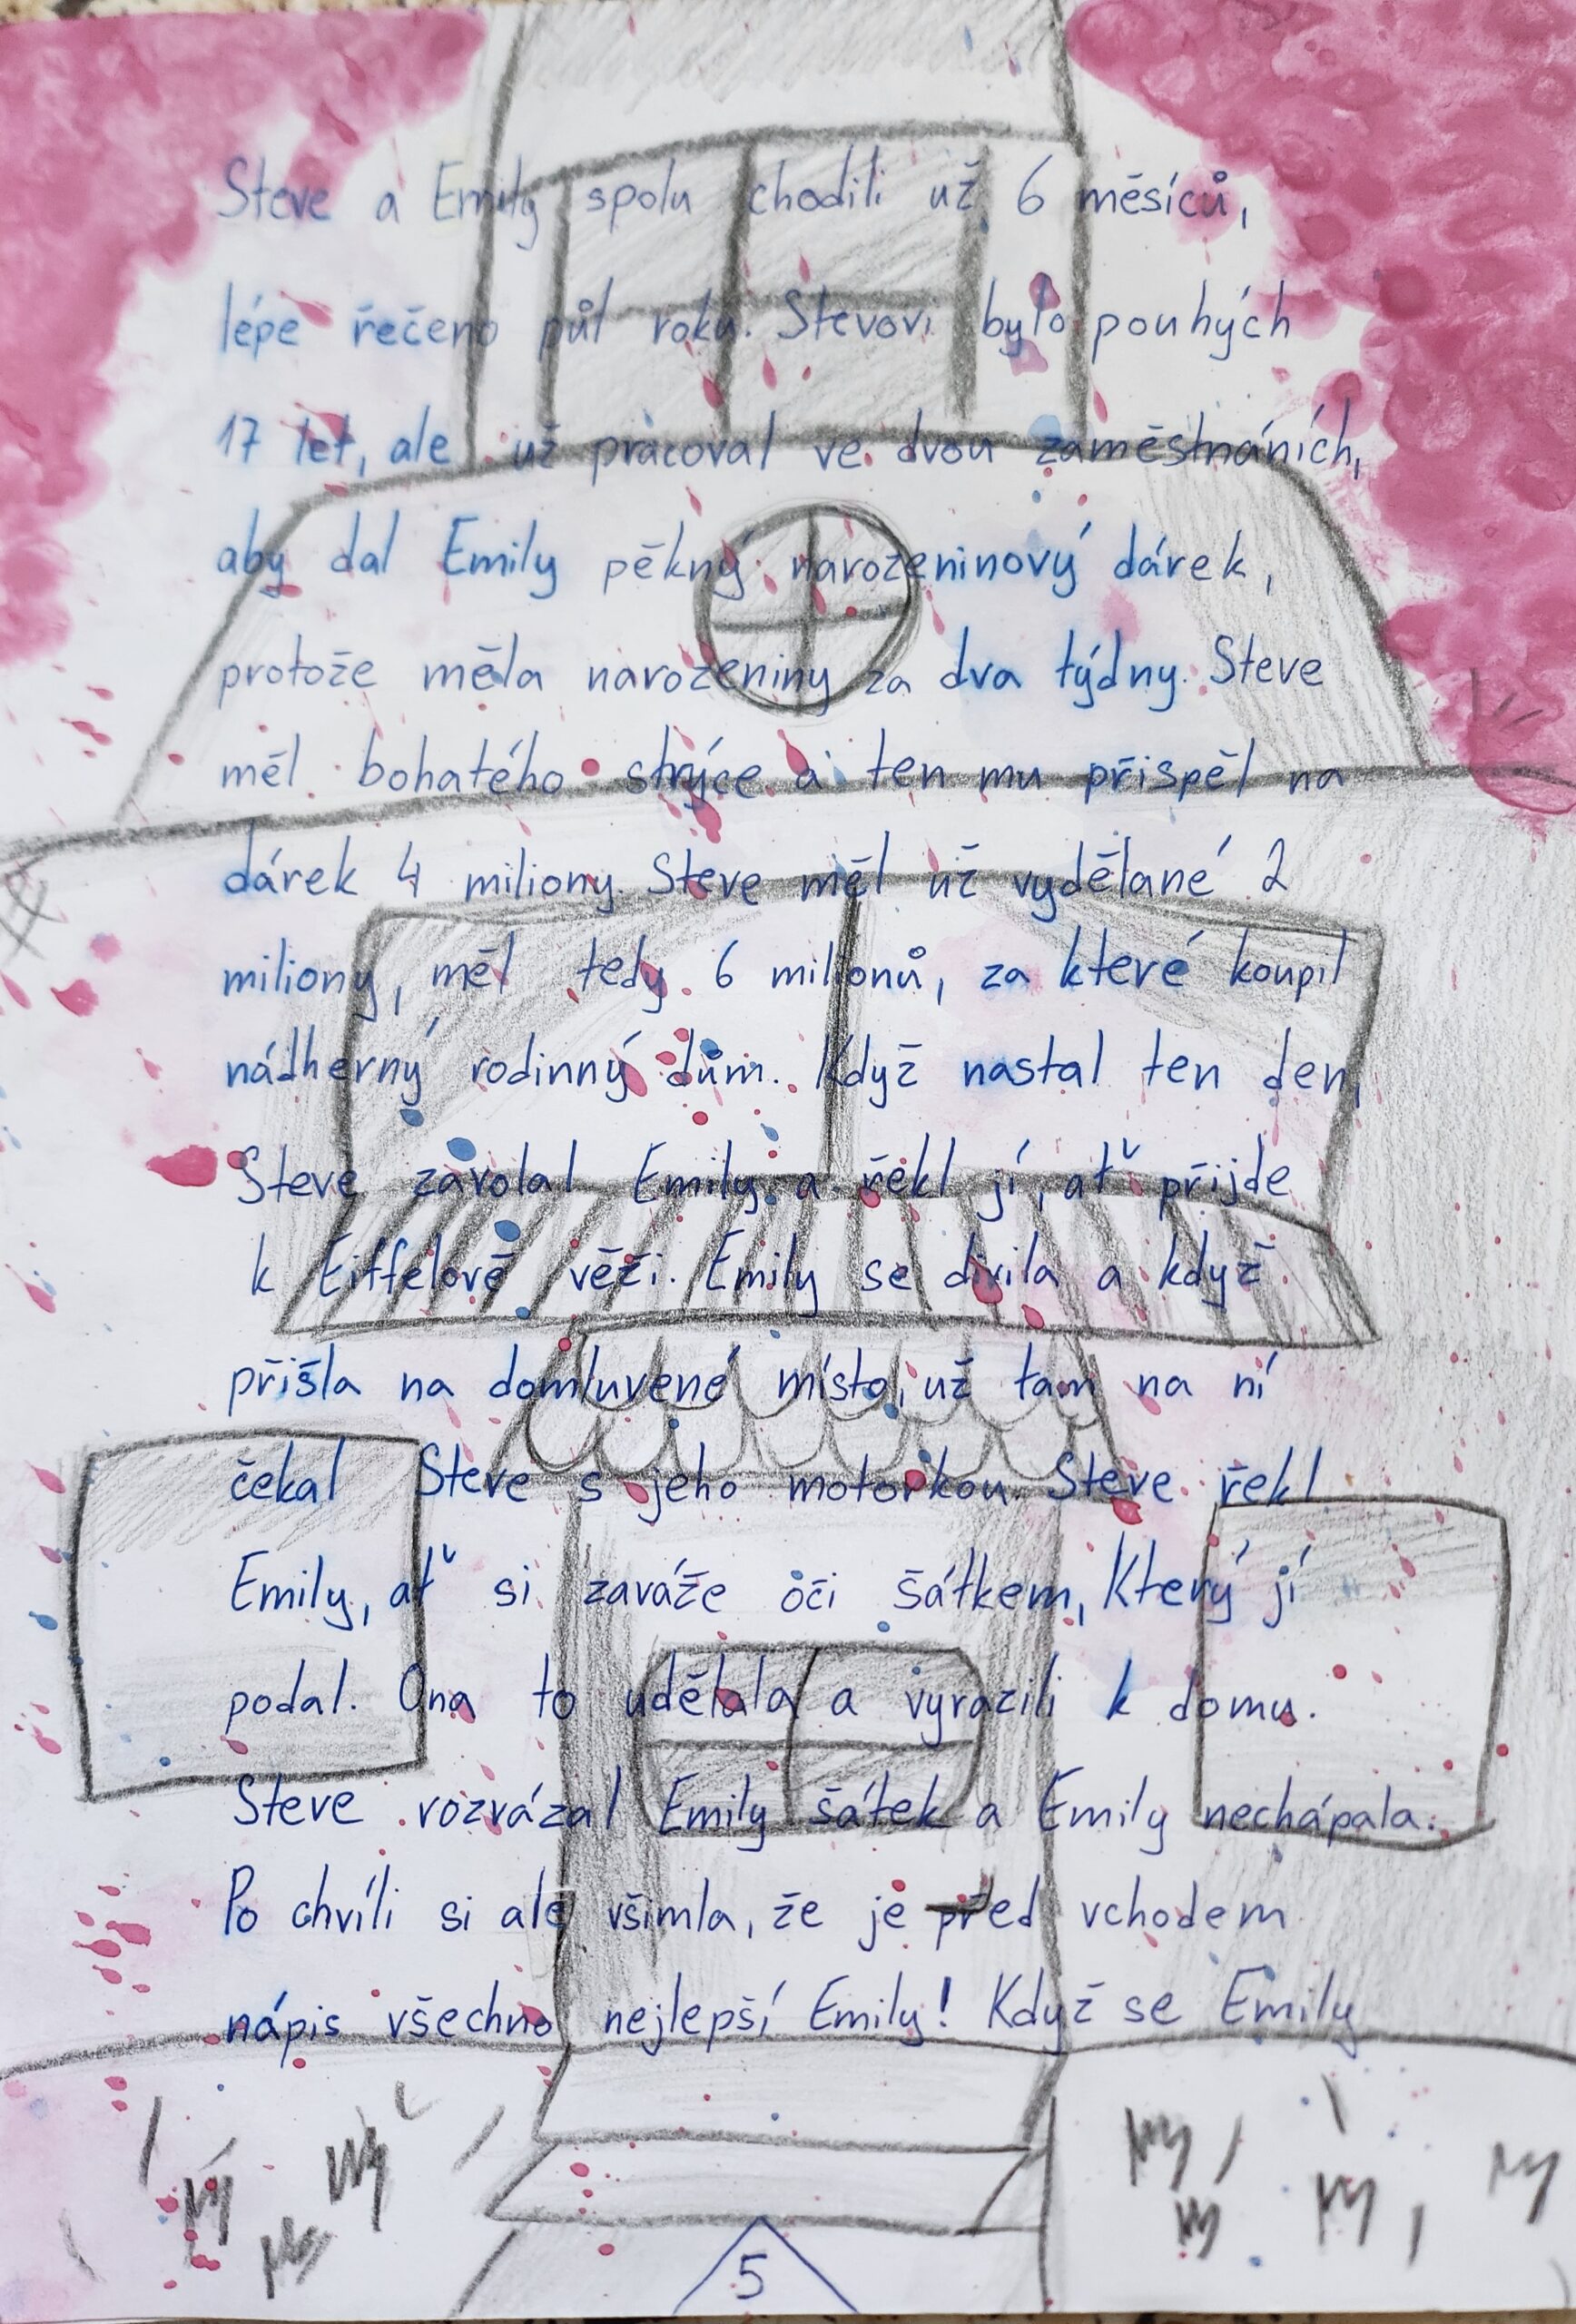 Steve a Emily spolu chodili už 6 měsíců,
lépe řečeno půl roku. Stevovi bylo pouhých
17 let, ale už pracoval ve dvou zaměstnáních,
aby dal Emily pěkný narozeninový dárek,
protože měla narozeniny za dva týdny. Steve
měl bohatého strýce a ten mu přispěl na
dárek 4 miliony. Steve měl už vydělané 2
miliony, měl tedy 6 milionů, za které koupil
nádherný rodinný dům. Když nastal ten den,
Steve zavolal Emily a řekl jí, ať přijde
k Eiffelově věži. Emily se divila a když
přišla na domluvené místo, už tam na ní
čekal Steve s jeho motorkou. Steve řekl
Emily, ať si zaváže oči šátkem, který jí
podal. Ona to udělala a vyrazili k domu.
Steve rozvázal Emily šátek a Emily nechápala.
Po chvíli si ale všimla, že je před vchodem
nápis všechno nejlepší Emily! Když se Emily
5